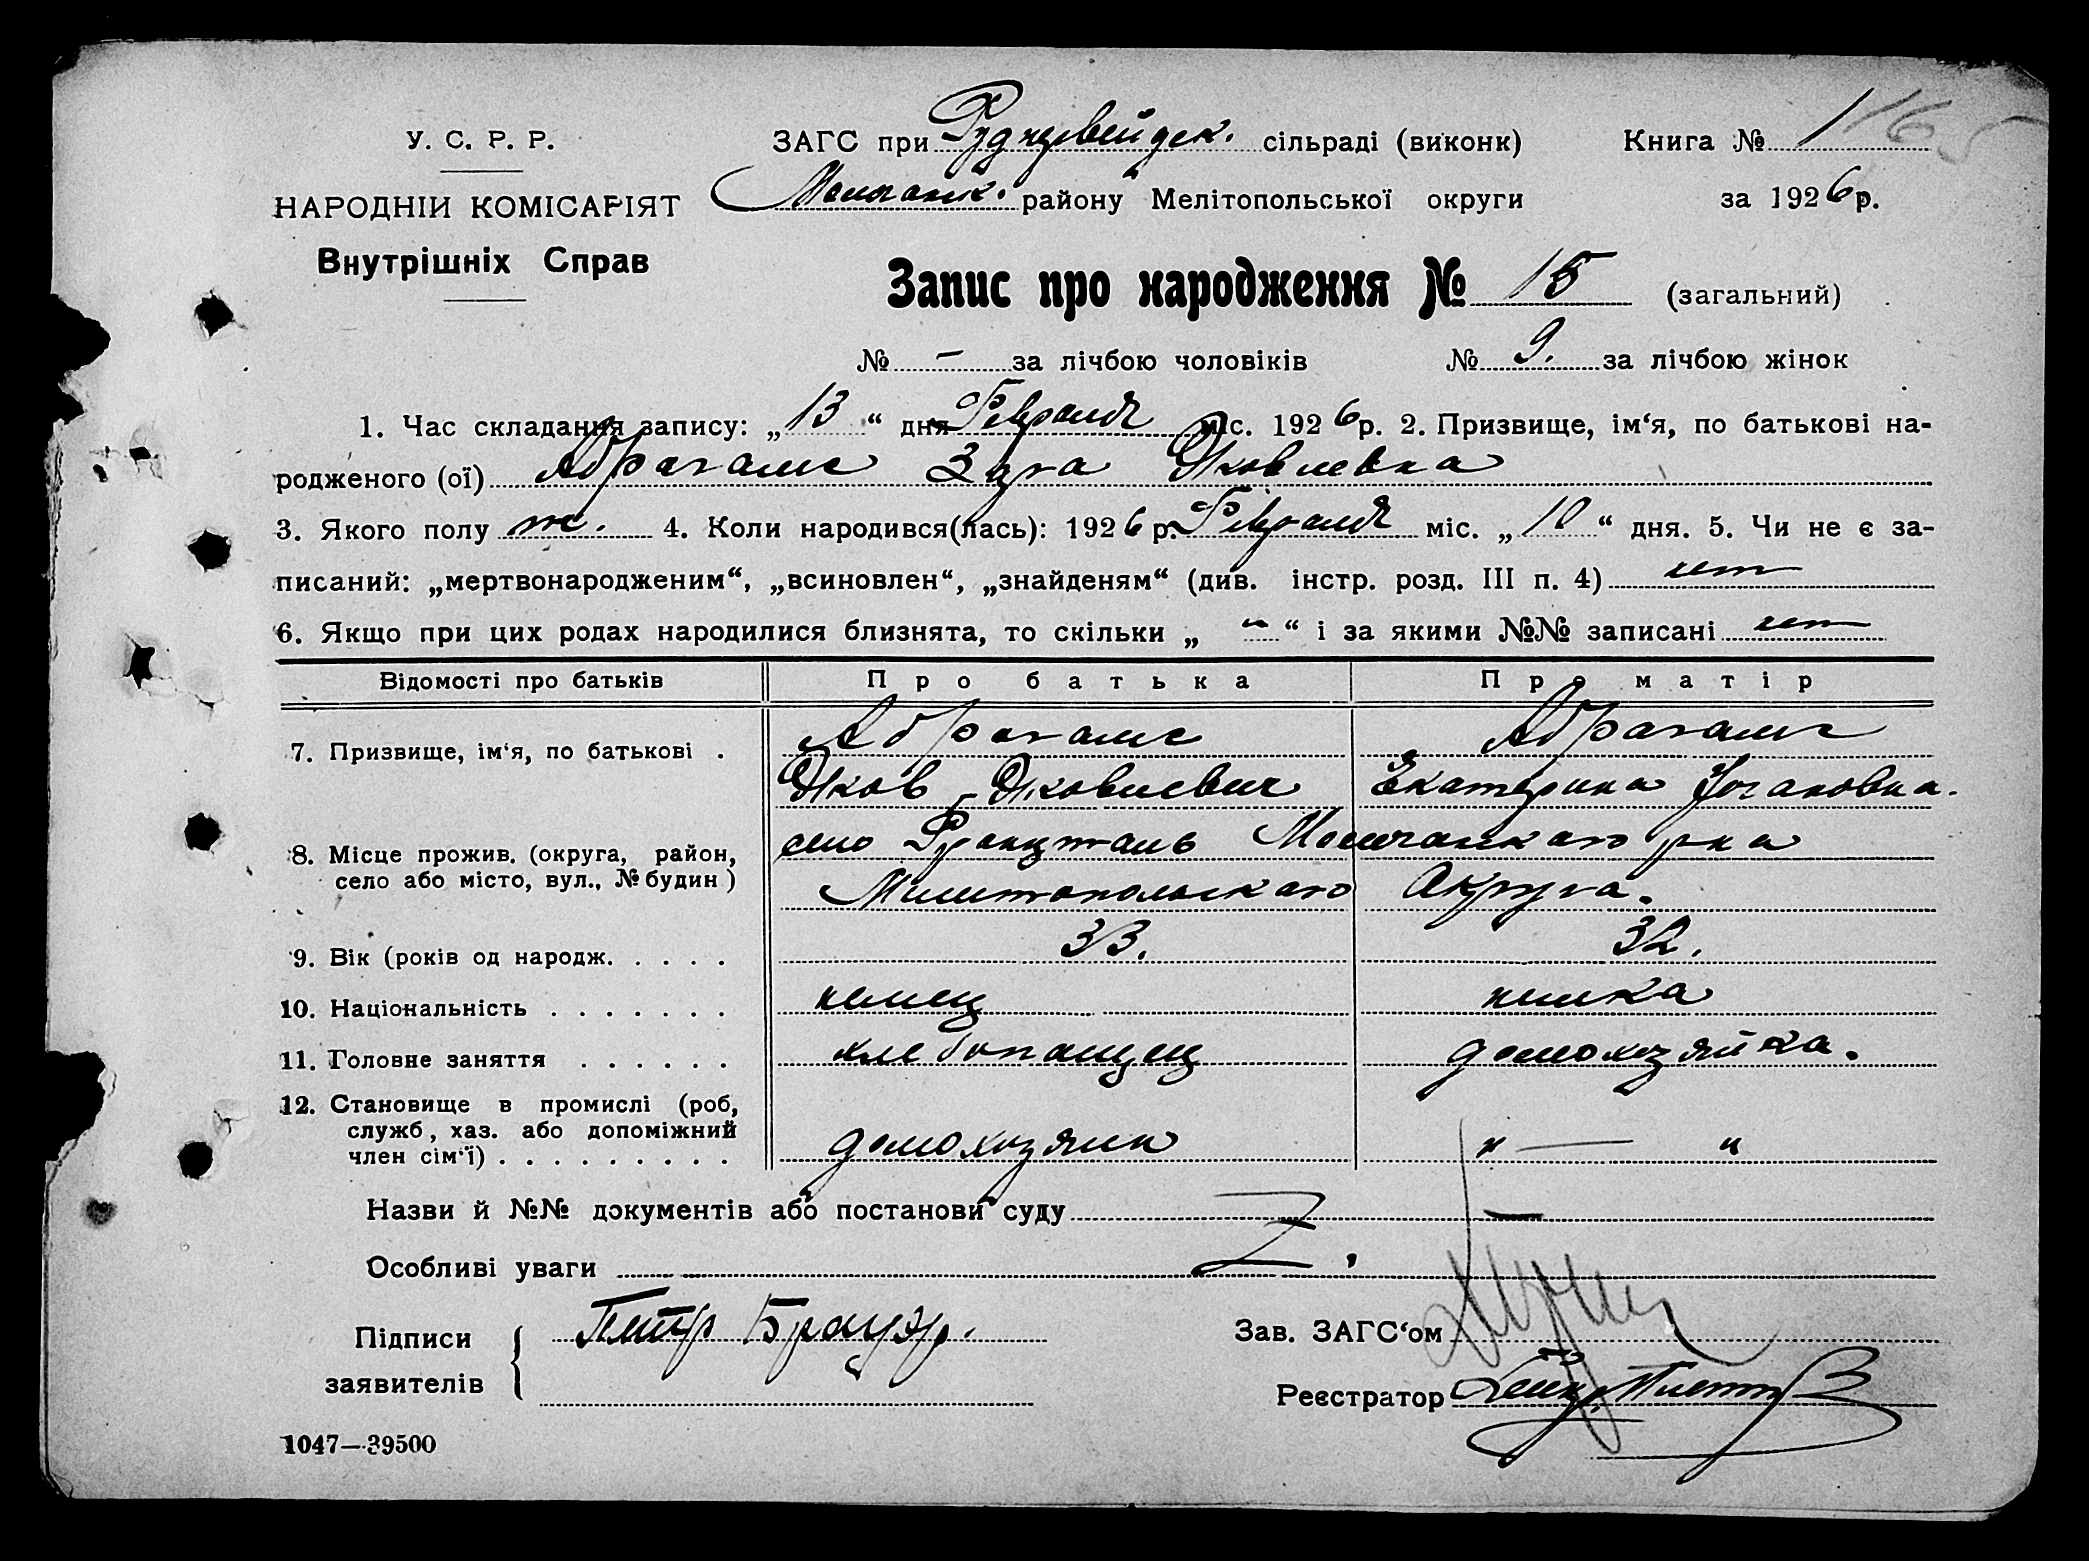 У. С. Р. Р.
ЗАГС при Рудnервейдск. сільраді (виконк)
Книга № 1 165
НАРОДНІЙ КОМІСАРІЯТ
Молочанск. району Мелітопольської округи
за 1926 р.
Внутрішніх Справ
Запис про народження № 15 (загальний)
№ – за лічбою чоловіків № 9. за лічбою жінок
1. Час складання запису: „13“ дня Февраля міс. 1926 р. 2. Призвище, ім‘я, по батькові на-
родженого (ої) Абрагамс Зуза Яковлевна
3. Якого полу ж. 4. Коли народився(лась): 1926 р. Февраля міс. „10“ дня. 5. Чи не є за-
писаний: „мертвонародженим“, „всиновлен“, „знайденям“ (див. інстр. розд. III п. 4) нет
6. Якщо при цих родах народилися близнята, то скільки „ – “ і за якими №№ записані нет
Відомості про батьків Про батька Про матір
7. Призвище, ім‘я, по батькові . Абрагамс Абрагамс
Яков Яковлевич Екатерина Йогановна.
8. Місце прожив. (округа, район, село Францталь Молочанскаго р-на
село або місто, вул., № будин) Мелитопольскаго Округа.
9. Вік (років од народж. . . . . 33. 32.
10. Національність . . . . . . . немец немка
11. Головне заняття . . . . . . хлебопашец домохозяйка.
12. Становище в промислі (роб,
служб, хаз. або допоміжний
член сім‘ї) . . . . . . . . . домохозяин " — "
Назви й №№ документів або постанови суду –
Особливі уваги
Підписи
заявителів
Петр Брауэр.
Зав. ЗАГС‘ом
Реєстратор
1047—39500